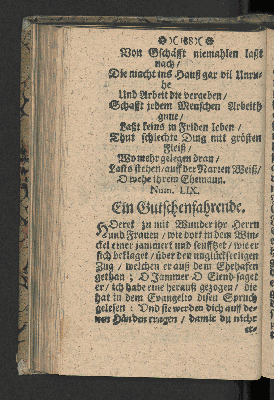 )( 188 )(
Von Gschäfft niemahlen laßt
nach/
Die macht ins Hauß gar vil Unru-
he
Und Arbeit die vergeben/
Schafft jedem Menschen Arbeith
gnue/
Laßt keins in Friden leben/
Thut schlechte Ding mit grösten
Fleiß/
Wo mehr gelegen dran/
Lasts stehen/ auff der Narren Weiß/
O wehe ihrem Ehemann.
Num. LIX.
Ein Gutschenfahrende.
HÖret zu mit Wunder ihr Herrn
und Frauen/ wie dort in dem Win-
ckel einer jammert und seufftzet/ wie er
sich beklaget/ über den unglückseeligen
Zug/ welchen er auß dem Ehehafen
gethan; O Jammer O Elend saget
er/ ich habe eine herauß gezogen/ die
hat in dem Evangelio disen Spruch
gelesen: Und sie werden dich auff de-
nen Händen tragen/ damit du nicht